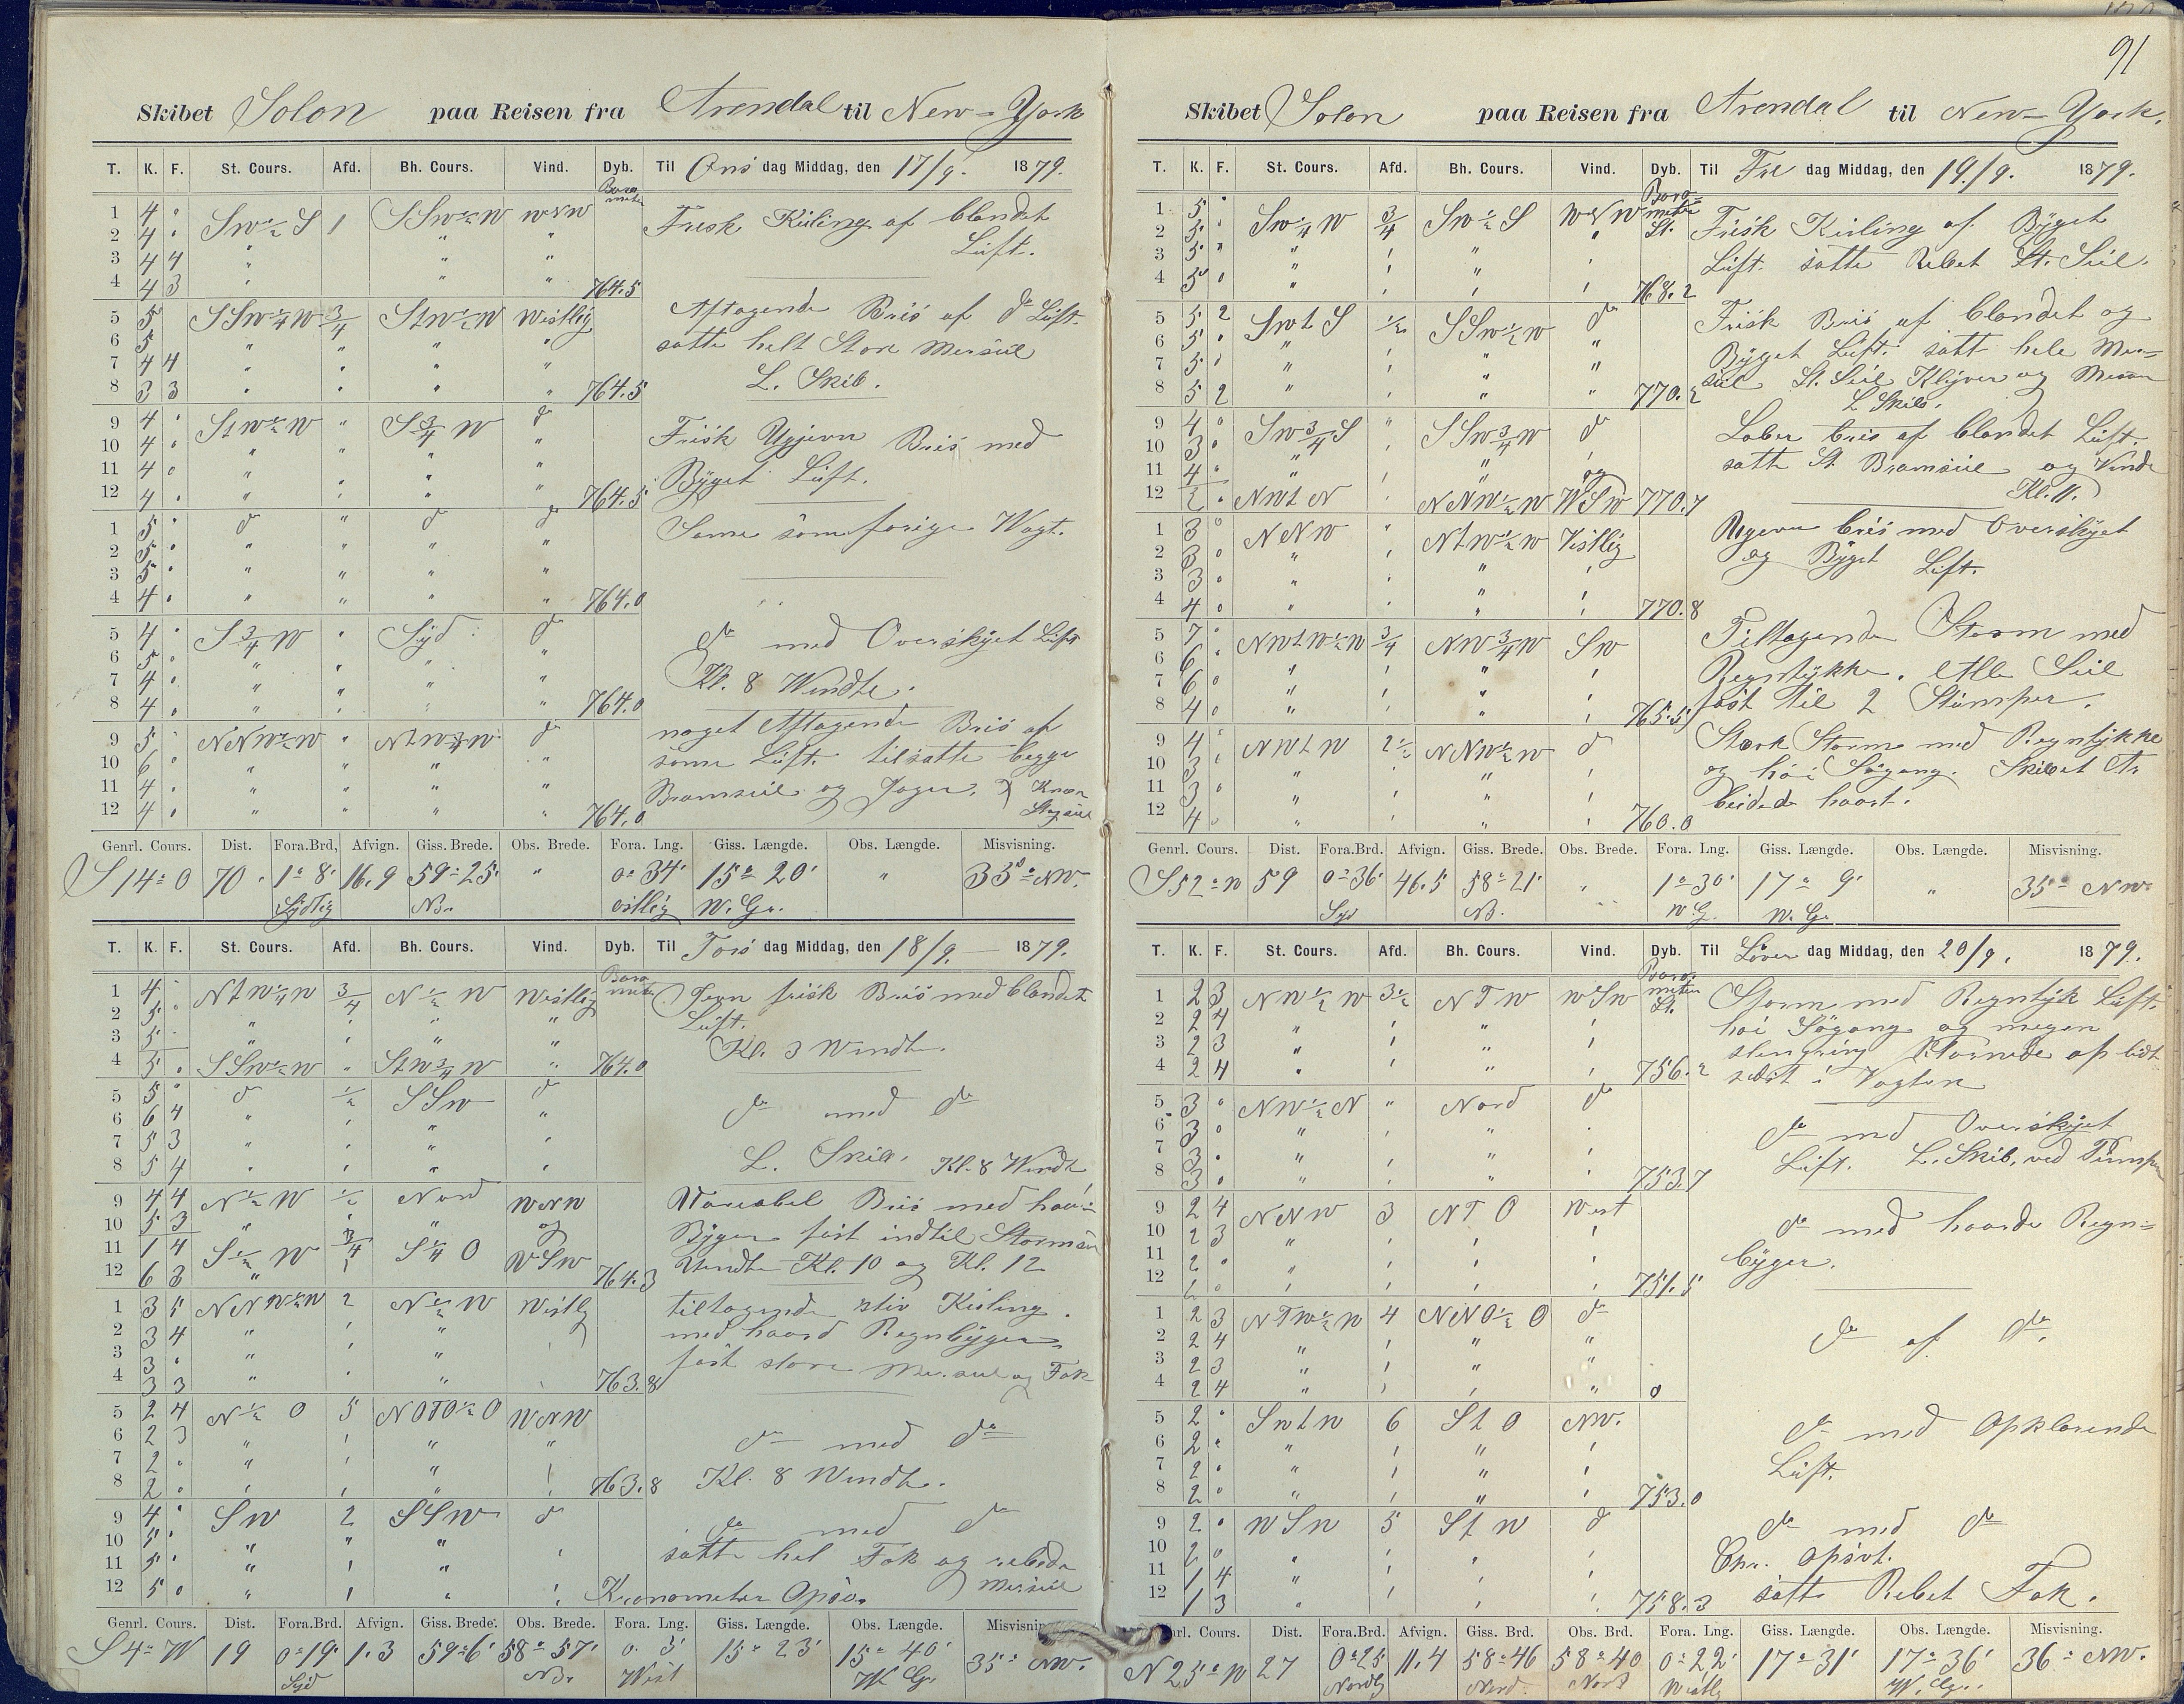 91
Skibet Solon paa Reisen fra Arendal til New=York
T. K. F. St. Cours. Afd. Bh. Cours. Vind. Dyb. Til Ons dag Middag, den 17/9. 1879.
Barometer
1 4 " SW½S 1 SSW½W WNW Frisk Kuling af blandet
2 4 " " " Luft.
3 4 4 " " "
4 4 3 " " " 764.5
5 5 SSW¼W ¾ StW½W Westlig Aftagende Bris af do Luft.
6 5 " " " " satte helt Store Merseil
7 4 4 " " " "
8 3 3 " " " " 764.5 L. Skib.
9 4 " StW½W " S¾W do Frisk Ujevn Bris med
10 4 " " " " "
11 4 " " " " " Byget Luft.
12 4 " " " " " 764.5
1 5 " do " do do Samme som forige Vagt.
2 5 " " " " "
3 5 " " " " "
4 4 " " " " " 764.0
5 4 " S¾W " Syd do do med Overskyet Luft
6 5 " " " " "
7 4 " " " " " Kl. 8 Wendte.
8 4 " " " " " 764.0
9 5 " NNW½W " do noget Aftagende Bris af
10 6 " " " " " samme Luft. tilsatte begge
11 4 " " " " " Bramseil og Jager.
12 4 " " " " " 764.0
Genrl. Cours. Dist. Fora.Brd, Afvign. Giss. Brede. Obs. Brede. Fora. Lng. Giss. Længde. Obs. Længde. Misvisning.
S 14° O 70 1° 8' 16.9 59° 25' " 0° 34' 15° 20' " 35° NW.
Sydlig Nr. ostlig W. Gr.
T. K. F. St. Cours. Afd. Bh. Cours. Vind. Dyb. Til Tors dag Middag, den 18/9. 1879.
Barometer
1 4 " NtW¼W ¾ N½W Westlig Jevn frisk Bris med blandet
2 5 " " " " " Luft.
3 5 " " " " " Kl. 3 Wendte.
4 5 " SSW½W " StW¾W " 764.0
5 5 " do ½ SSW do do med do
6 6 4 " " " "
7 5 3 " " " "
8 5 4 " " " " L. Skib. Kl. 8 Wendte
9 4 4 N½W ½ Nord WNW Variabel Bris med haarde
10 5 3 " " " og Byger fast indtil
11 1 4 S½W ¾ S¼O WSW Wendte Kl. 10 og Kl. 12
12 6 3 " " 764.3
1 3 5 NNW½W 2 N½W Westlig tiltagende stiv Kuling
2 3 4 " " " med haard Regnbyger.
3 3 " " " fast store Merseil og Fok
4 3 3 " " " " 763.8
5 2 4 N½O 5 NOTO½O WNW do med do
6 2 3 " " " "
7 2 " " " " "
8 2 " " " " " 763.8 Kl. 8 Wendte.
9 4 " SW 2 SSW do do med do
10 5 " " " " satte hel Fok og rebede
11 5 " " " " " Merseil
12 5 " " " " " Kronometer Opsv.
Genrl. Cours. Dist. Fora.Brd. Afvign. Giss. Brede. Obs. Brede. Fora. Lng. Giss. Længde. Obs. Længde. Misvisning
S 4° W 19 0° 19' 1.3 59° 6' 58° 57' 0° 3' 15° 23' 15° 40' 35° NW.
Syd Nr. West W. Gr.
Skibet Solon paa Reisen fra Arendal til New=York.
T. K. F. St. Cours. Afd. Bh. Cours. Vind. Dyb. Til Fre dag Middag, den 19./9. 1879.
Barometer St.
1 5 " SW¼W ¾ SW½S WNW Frisk Kuling af Byget
2 5 " " " " " Luft. satte Rebet St. Seil.
3 5 " " " " "
4 5 " " " " " 768.2
5 5 2 SWtS ½ SSW½W do Frisk Bris af blandet og
6 5 " " " " " Byget Luft. satt hele Mer=
7 5 " " " " " seil St. Seil Klyver og Mesan
8 5 2 " " " " 770.2 L Skib.
9 4 " SW¾S " SSW¾W do Laber bris af blandet Luft.
10 3 " " " " " satte St. Bramseil og Vendte
11 4 " " " " og Kl. 11.
12 2 " NWtN " NNW½W WSW 770.7
1 3 " NNW " NtW½W Vestlig Ugevn bris med Overskyet
2 3 " " " " " og Byget Luft.
3 3 " " " " "
4 4 " " " " " 770.8
5 7 " NWtW½W ¾ NW¾W SW Tiltagende Storm med
6 6 " " " " " Regntykke. Alle Seil
7 6 " " " " " fast til 2 Stumper.
8 4 " " " " " 765.5
9 4 " NWtW 2½ NNW½W do Stærk Storm med Regntykke
10 3 " " " " " og høi Søgang. Skibet Ar
11 3 " " " " " beidede haart.
12 4 " " " " " 760.0
Genrl. Cours. Dist. Fora.Brd. Afvign. Giss. Brede. Obs. Brede. Fora. Lng. Giss. Længde. Obs. Længde. Misvisning.
S 52° W 59 0° 36' 46.5 58° 21' " 1° 30' 17° 9' " 35° NW.
Syd N. W G. W. Gr.
T. K. F. St. Cours. Afd. Bh. Cours. Vind. Dyb. Til Løver dag Middag, den 20/9. 1879.
Barometer St.
1 2 3 NW½W 3½ NTW WSW Storm med Regntyk Luft.
2 2 4 " " " " høi Søgang og megen
3 2 3 " " " " slengring
4 2 4 " " " " 756.2 i Vagten
5 3 " NW½N " Nord do do med Overskyet
6 3 " " " " "
7 3 " " " " " Luft. L. Skib, ved
8 3 " " " " " 753.7
9 2 4 NNW 3 NTO West do med haarde Regn=
10 2 3 " " " "
11 2 " " " " " byger.
12 2 " " " " " 751.5
1 2 3 NTW½W 4 NNO½O do do af do.
2 2 4 " " " "
3 2 3 " " " "
4 2 4 " " " " 0
5 2 " SWtW 6 StO NW. do med Opklarende
6 2 " " " " " Luft.
7 2 " " " " "
8 2 " " " " " 753.0
9 2 " WSW 5 StW do do med do
10 2 " " " " " Chr. opsvt.
11 1 4 " " " "
12 1 3 " " " " 758.3 satte Rebet Fok.
Cours. Dist. Fora.Brd. Afvign. Giss. Brd. Obs. Brd. Fora. Lng. Giss. Længde. Obs. Længde. Misvisning.
N 25° W 27 0° 25 11.4 58° 46 58° 40 0° 22' 17° 31' 17° 36' 36° NW.
Nordlig Nord. Nord Westlig W. Gr.